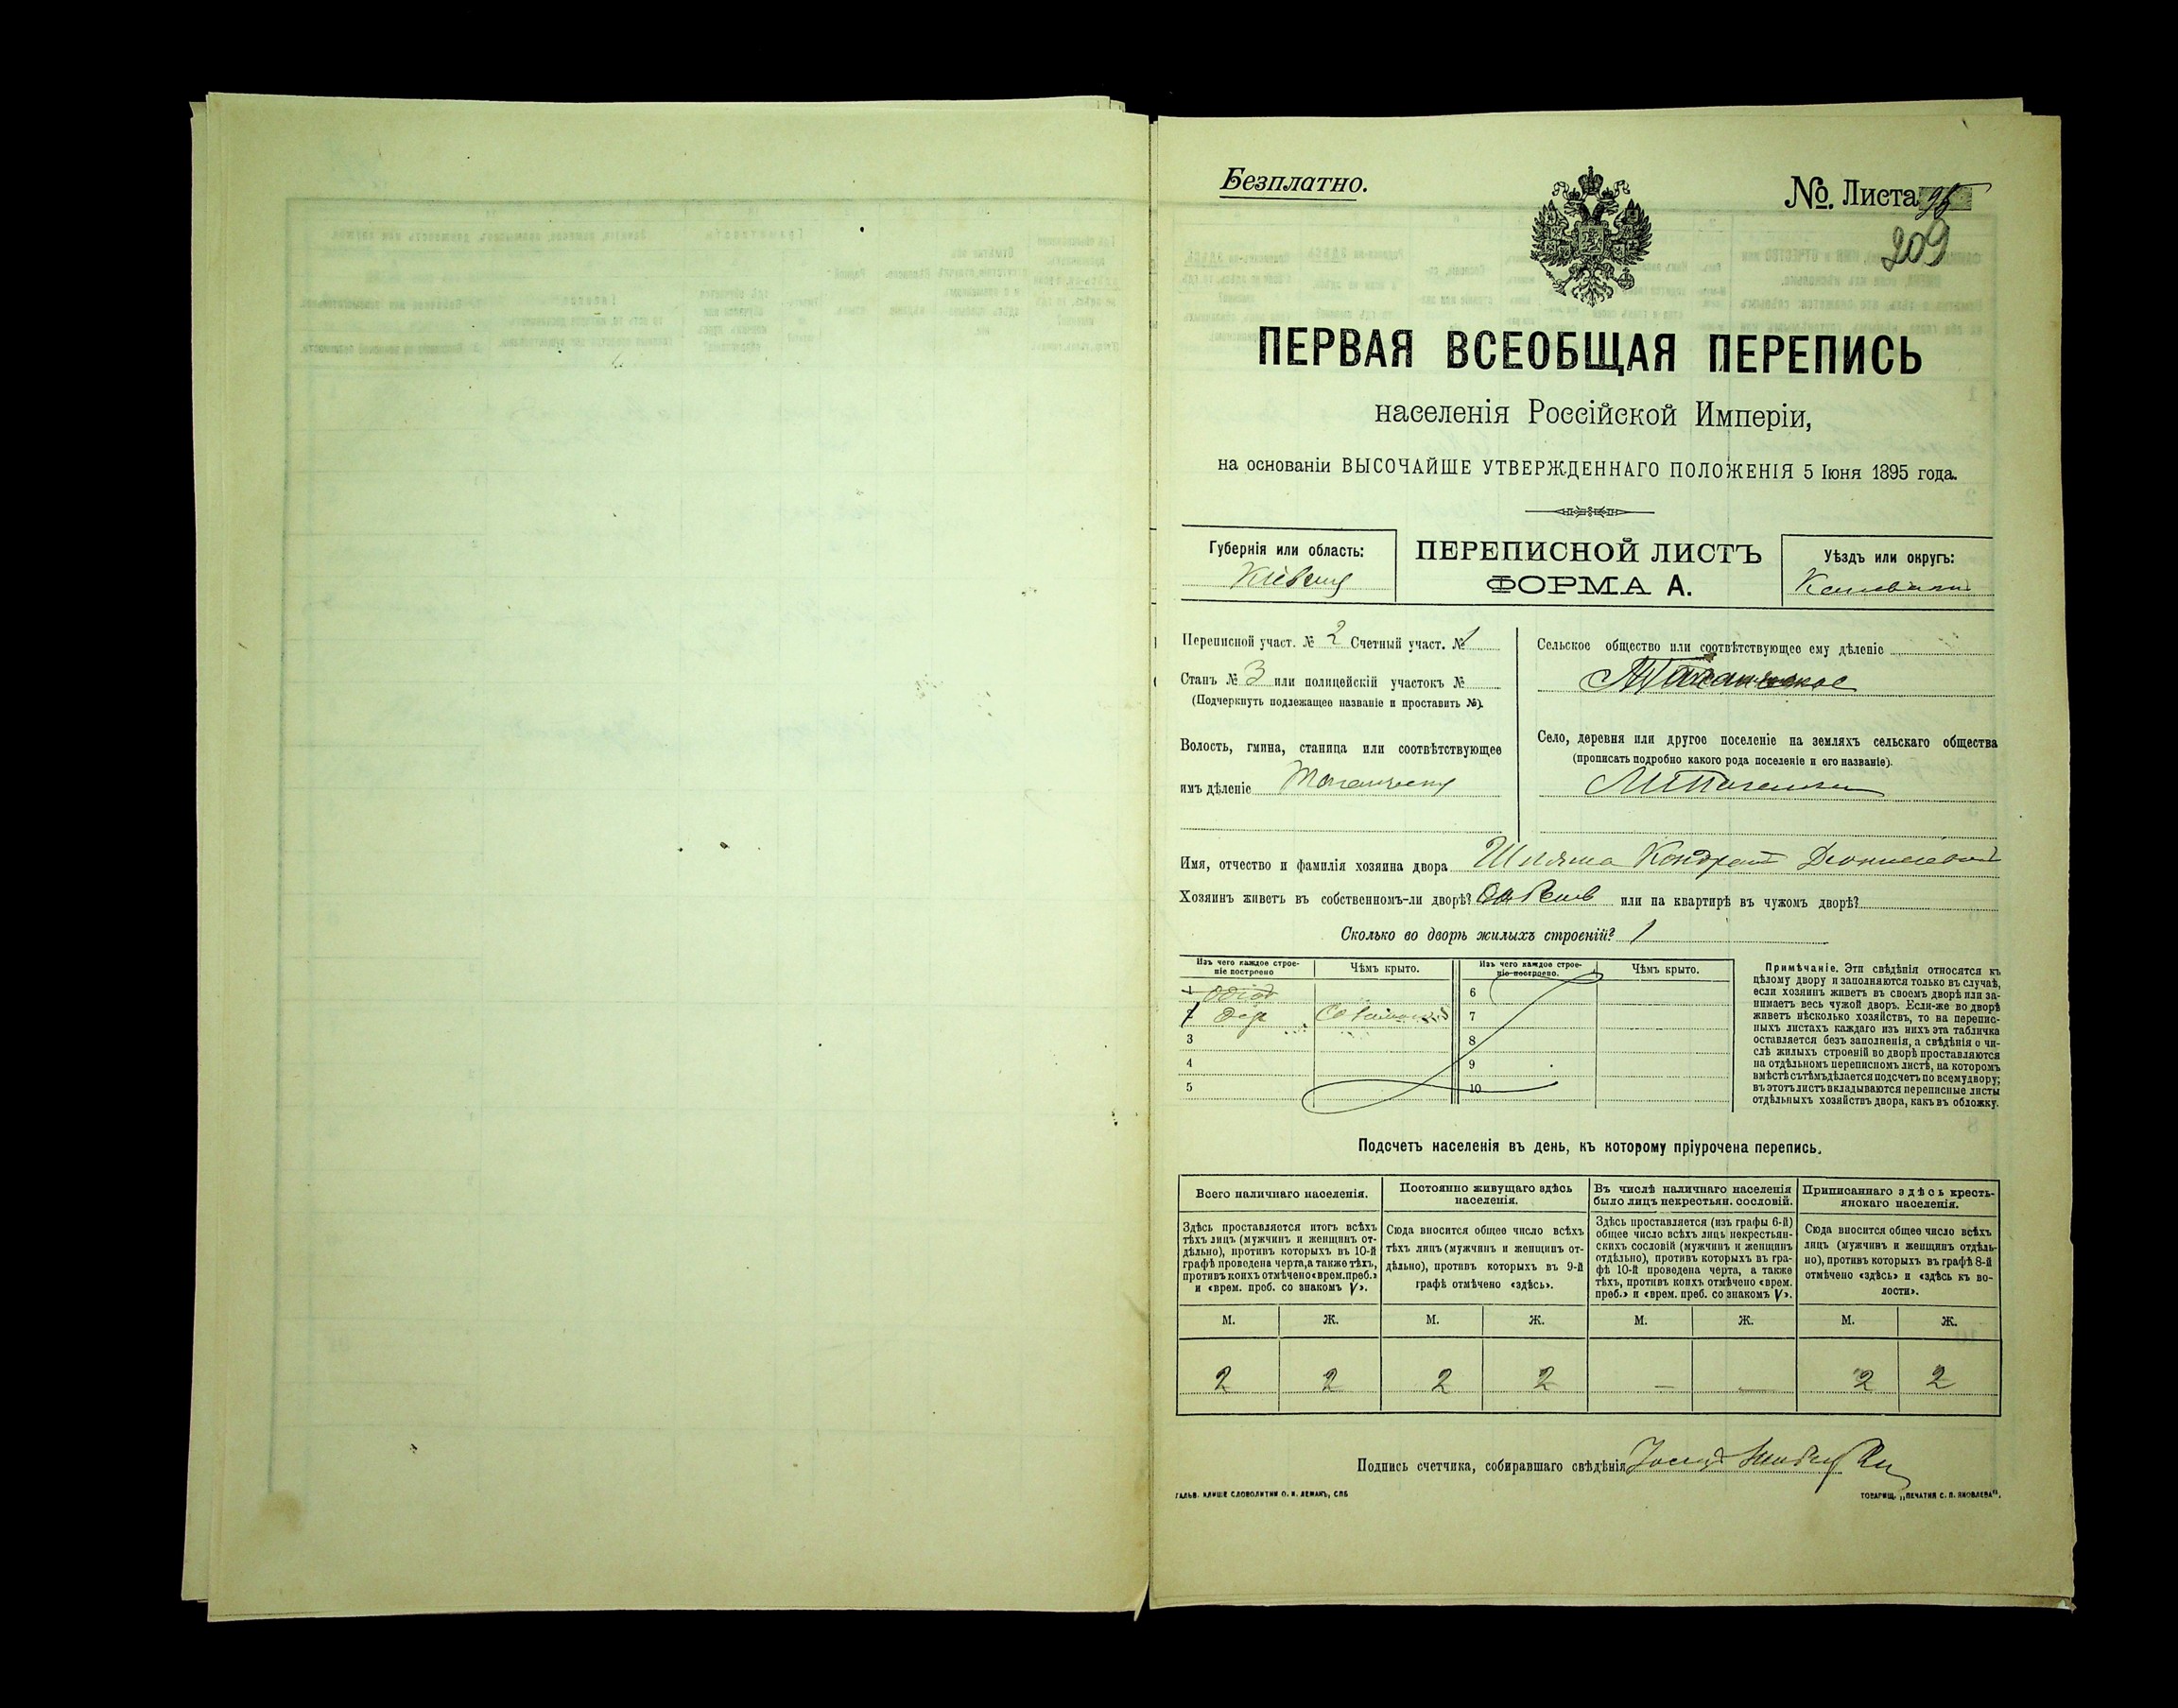 Безплатно.
№. Листа 95
209
ПЕРВАЯ ВСЕОБЩАЯ ПЕРЕПИСЬ
населенія Россійской Имперіи,
на основаніи ВЫСОЧАЙШЕ УТВЕРЖДЕННАГО ПОЛОЖЕНІЯ 5 Іюня 1895 года.
Губернія или область:
Кіевская
ПЕРЕПИСНОЙ ЛИСТЪ
ФОРМА А.
Уѣздъ или округъ:
Каневскій
Переписной участ. № 2 Счетный участ. № 1
Станъ № 3 или полицейскій участокъ №
(Подчеркнуть подлежащее названіе и проставить №).
Волость, гмина, станица или соотвѣтствующее
имъ дѣленіе
Сельское общество или соотвѣтствующее ему дѣленіе
Село, деревня или другое поселеніе на земляхъ сельскаго общества
(прописать подробно какого рода поселеніе и его названіе).
Имя, отчество и фамилія хозяина двора Кондрат
Хозяинъ живетъ въ собственномъ-ли дворѣ? или на квартирѣ въ чужомъ дворѣ?
Сколько во дворѣ жилыхъ строеній? 1
Изъ чего каждое строе-
ніе построено
Чѣмъ крыто.
Изъ чего каждое строе-
ніе построено.
Чѣмъ крыто.
1
2 дер Соломою
3
4
5
6
7
8
9
10
Примѣчаніе. Эти свѣдѣнія относятся къ
цѣлому двору и заполняются только въ случаѣ,
если хозяинъ живетъ въ своемъ дворѣ или за-
нимаетъ весь чужой дворъ. Если-же во дворѣ
живетъ нѣсколько хозяйствъ, то на перепис-
ныхъ листахъ каждаго изъ нихъ эта табличка
оставляется безъ заполненія, а свѣдѣнія о чи-
слѣ жилыхъ строеній во дворѣ проставляются
на отдѣльномъ переписномъ листѣ, на которомъ
вмѣстѣ съ тѣмъ дѣлается подсчетъ по всему двору;
въ этотъ листъ вкладываются переписные листы
отдѣльныхъ хозяйствъ двора, какъ въ обложку.
Подсчетъ населенія въ день, къ которому пріурочена перепись.
Всего наличнаго населенія.
Здѣсь проставляется итогъ всѣхъ
тѣхъ лицъ (мужчинъ и женщинъ от-
дѣльно), противъ которыхъ въ 10-й
графѣ проведена черта, а также тѣхъ,
противъ коихъ отмѣчено «врем. преб.»
и «врем. преб. со знакомъ V».
Постоянно живущаго здѣсь
населенія.
Сюда вносится общее число всѣхъ
тѣхъ лицъ (мужчинъ и женщинъ от-
дѣльно), противъ которыхъ въ 9-й
графѣ отмѣчено «здѣсь».
Въ числѣ наличнаго населенія
было лицъ некрестьян. сословій.
Здѣсь проставляется (изъ графы 6-й)
общее число всѣхъ лицъ некрестьян-
скихъ сословій (мужчинъ и женщинъ
отдѣльно), противъ которыхъ въ гра-
фѣ 10-й проведена черта, а также
тѣхъ, противъ коихъ отмѣчено «врем.
преб.» и «врем. преб. со знакомъ V».
Приписаннаго здѣсь кресть-
янскаго населенія.
Сюда вносится общее число всѣхъ
лицъ (мужчинъ и женщинъ отдѣль-
но), противъ которыхъ въ графѣ 8-й
отмѣчено «здѣсь» и «здѣсь къ во-
лости».
М. Ж. М. Ж. М. Ж. М. Ж.
2 2 2 2 — — 2 2
Подпись счетчика, собиравшаго свѣдѣнія
ГАЛЬВ. КЛИШЕ СЛОВОЛИТНИ О. И. ЛЕМАНЪ, СПБ
ТОВАРИЩ. „ПЕЧАТНЯ С. П. ЯКОВЛЕВА".